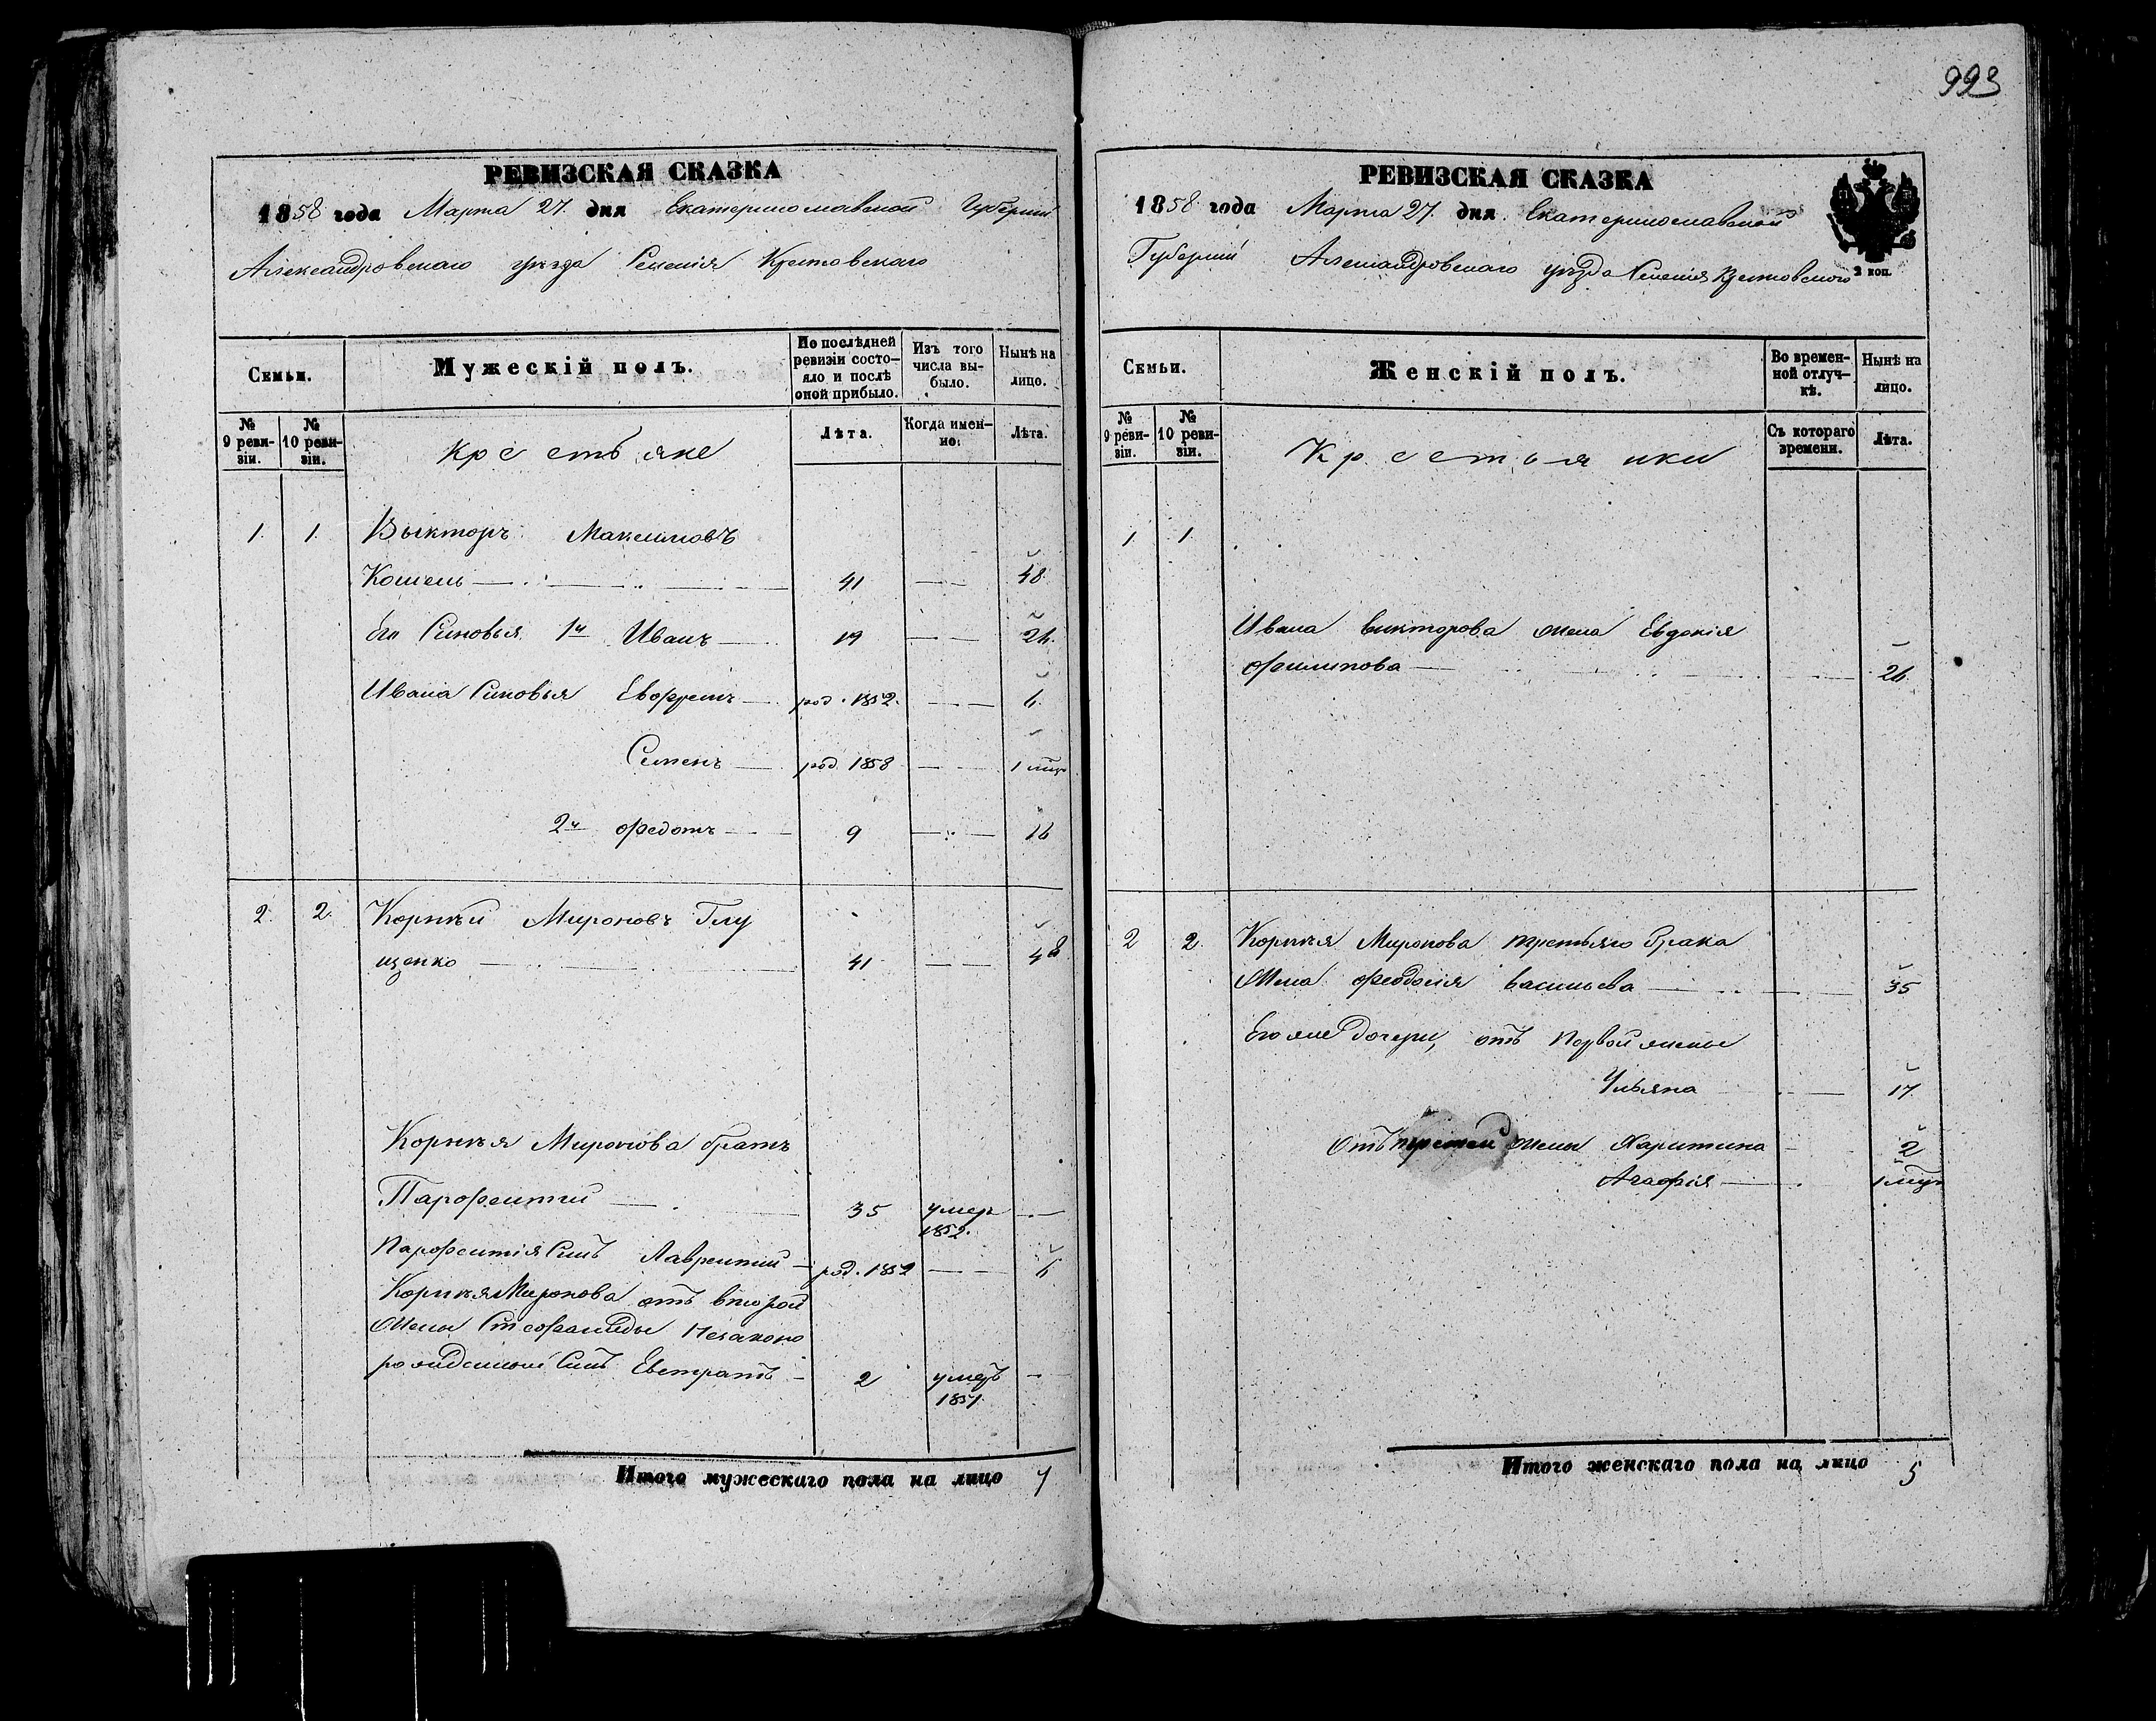 993
РЕВИЗСКАЯ СКАЗКА
1858 года Марта 27. дня Екатеринославской Губерніи
Александровскаго уѣзда Селенія Крестовскаго
Семьи.
Мужескій полъ.
По послѣдней ревизіи состояло и послѣ оной прибыло.
Изъ того числа выбыло.
Нынѣ на лицо.
№ 9 ревизіи.
№ 10 ревизіи.
Крестьяне
Лѣта.
Когда именно.
Лѣта.
1. 1. Выкторъ Максимовъ
Кошель 41 48
его Синовья 1й Иванъ 19 26.
Ивана Синовья Евфремъ род. 1852. 6.
Семенъ род. 1858 1 мѣц
2й Федотъ 9 16
2. 2. Корнѣй Мироновъ Глу
щенко 41 48
Корнѣя Миронова братъ
Парфентій 35 умеръ 1852.
Парфентія Синъ Лаврентій род. 1852 6
Корнѣя Миронова отъ второй
жены Стефаниды незаконо
рожденный Синъ Евстратъ 2 умеръ 1851.
Итого мужескаго пола на лицо 7
РЕВИЗСКАЯ СКАЗКА
1858 года Марта 27. дня Екатеринославской
Губерніи Александровскаго уѣзда Селенія Крестовского
2 коп.
Семьи.
Женскій полъ.
Во временной отлучкѣ.
Нынѣ на лицо.
№ 9 ревизіи.
№ 10 ревизіи.
Крестьянки
Съ котораго времени.
Лѣта.
1 1.
Ивана Викторова жена Евдокія
Филипова 26.
2 2. Корнѣя Миронова третьяго брака
Жена Феодосія Васильева 35
Его же дочери, отъ первой жены
Ульяна 17.
Отъ третей жены Харитина 2
Агафія 1 мѣц
Итого женскаго пола на лицо 5